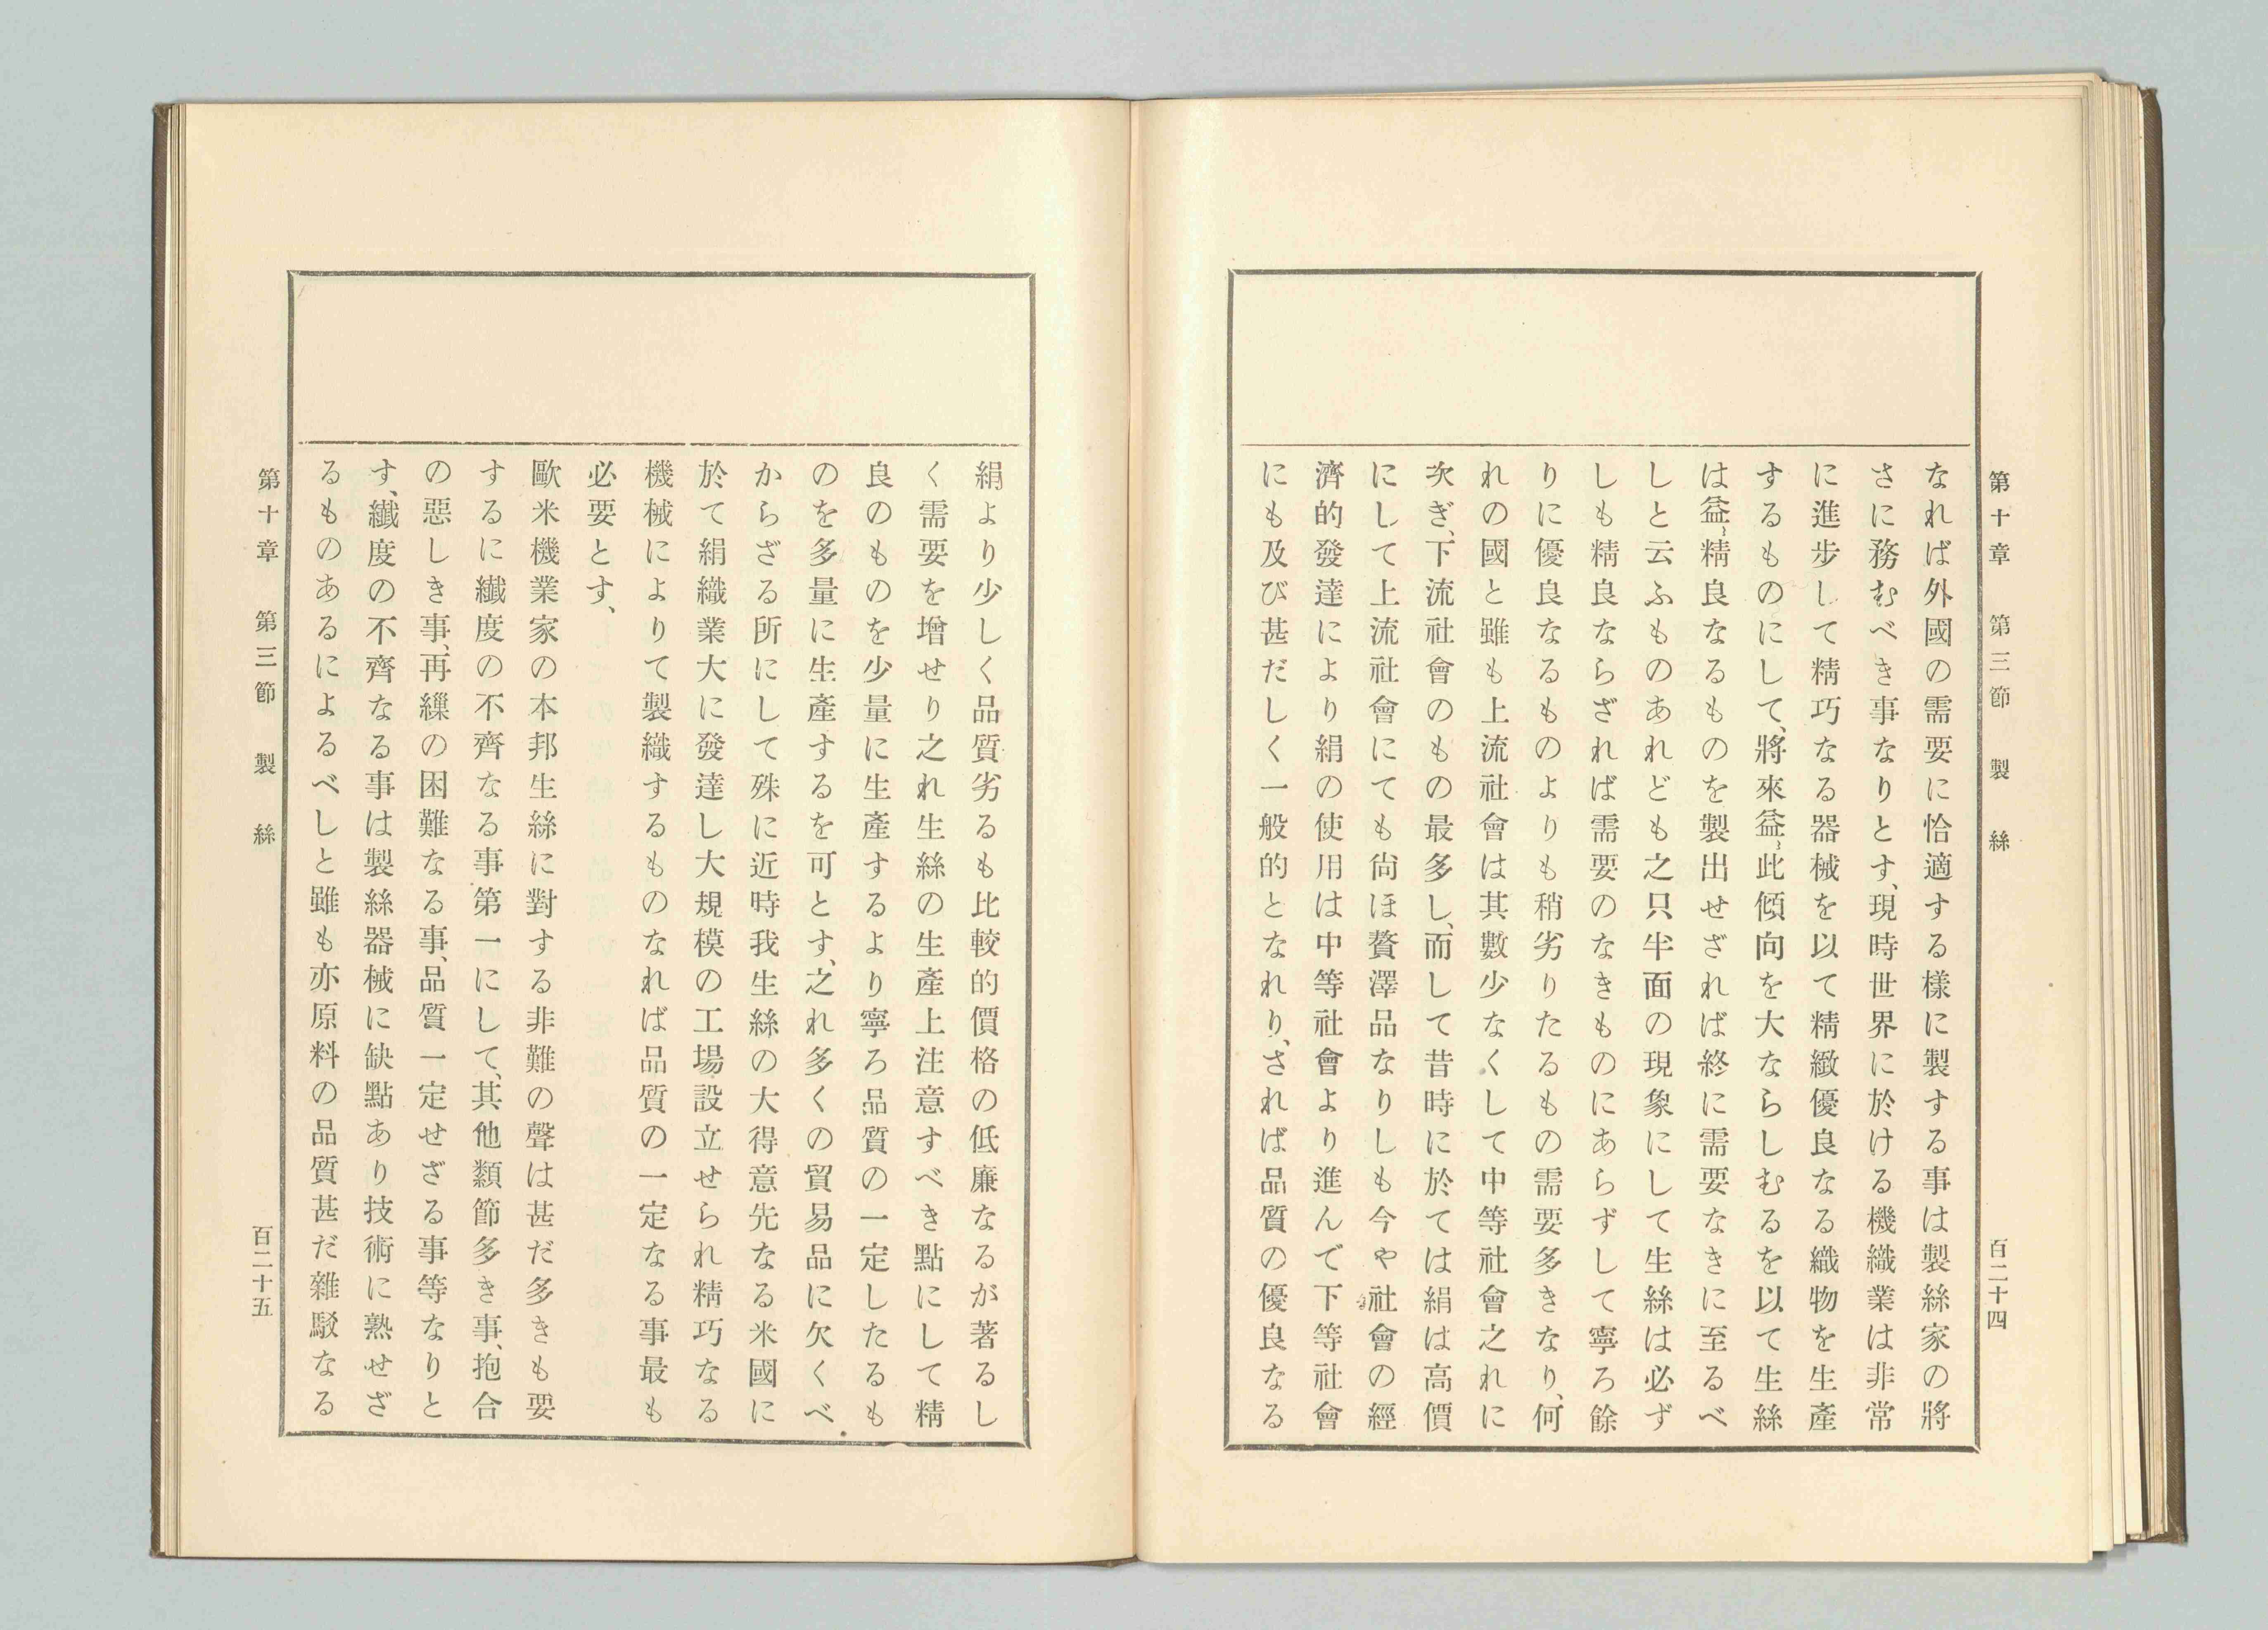 第十章　第三節　製　絲
百二十四
なれば外國の需要に恰適する樣に製する事は製絲家の將
さに務むべき事なりとす、現時世界に於ける機織業は非常
に進步して精巧なる器械を以て精緻優良なる織物を生產
するものにして、將來益〻此傾向を大ならしむるを以て生絲
は益〻精良なるものを製出せざれば終に需要なきに至るべ
しと云ふものあれども之只半面の現象にして生絲は必ず
しも精良ならざれば需要のなきものにあらずして寧ろ餘
りに優良なるものよりも稍劣りたるもの需要多きなり、何
れの國と雖も上流社會は其數少なくして中等社會之れに
次ぎ、下流社會のもの最多し、而して昔時に於ては絹は高價
にして上流社會にても尙ほ贅澤品なりしも今や社會の經
濟的發達により絹の使用は中等社會より進んで下等社會
にも及び甚だしく一般的となれり、されば品質の優良なる
絹より少しく品質劣るも比較的價格の低廉なるが著るし
く需要を增せり之れ生絲の生產上注意すべき點にして精
良のものを少量に生產するより寧ろ品質の一定したるも
のを多量に生產するを可とす、之れ多くの貿易品に欠くべ
からざる所にして殊に近時我生絲の大得意先なる米國に
於て絹織業大に發達し大規模の工場設立せられ精巧なる
機械によりて製織するものなれば品質の一定なる事最も
必要とす、
歐米機業家の本邦生絲に對する非難の聲は甚だ多きも要
するに纎度の不齊なる事第一にして、其他類節多き事、抱合
の惡しき事、再繅の困難なる事、品質一定せざる事等なりと
す、纎度の不齊なる事は製絲器械に缺點あり技術に熟せざ
るものあるによるべしと雖も亦原料の品質甚だ雜駁なる
第十章　第三節　製　絲
百二十五